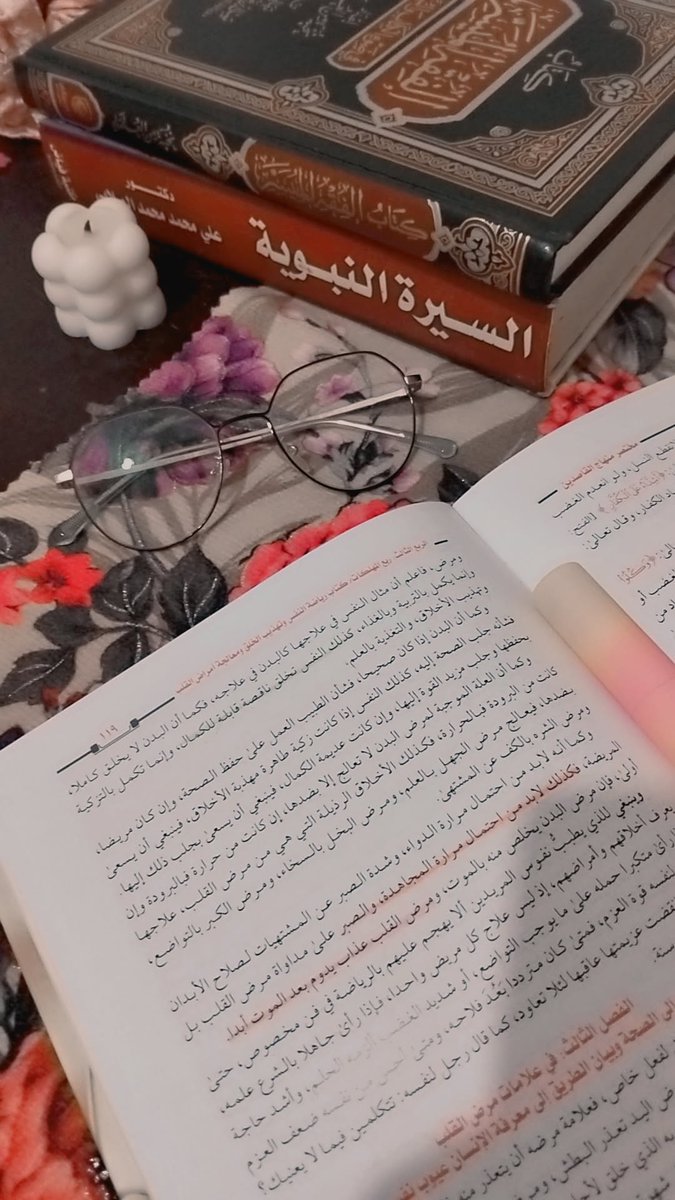 كتاب
الفقه الميسر
كتاب الفقه الميسر
دكتور
علي محمد محمد
السيرة النبوية
مختصر منهاج القاصدين
الربع الثالث: ربع المهلكات/ كتاب رياضة النفس وتهذيب الخلق ومعالجة أمراض القلب
١١٩
ومرض، فاعلم أن مثال النفس في علاجها كالبدن في علاجه، فكما أن البدن لا يخلق كاملا،
وإنما يكمل بالتربية وبالغذاء، كذلك النفس تخلق ناقصة قابلة للكمال، وإنما تكمل بالتزكية
وتهذيب الأخلاق، والتغذية بالعلم.
وكما أن البدن إذا كان صحيحا، فشأن الطبيب العمل على حفظ الصحة، وإن كان مريضا،
فشأنه جلب الصحة إليه، كذلك النفس إذا كانت زكية طاهرة مهذبة الأخلاق، فينبغي أن يسعى
بحفظها وجلب مزيد القوة إليها، وإن كانت عديمة الكمال، فينبغي أن يسعى بجلب ذلك إليها.
وكما أن العلة الموجبة لمرض البدن لا تعالج إلا بضدها، إن كانت من حرارة فبالبرودة وإن
كانت من البرودة فبالحرارة، فكذلك الأخلاق الرذيلة التي هي من مرض القلب، علاجها
بضدها، فيعالج مرض الجهل بالعلم، ومرض البخل بالسخاء، ومرض الكبر بالتواضع،
ومرض الشره بالكف عن المشتهى.
وكما أنه لابد من احتمال مرارة الدواء، وشدة الصبر عن المشتهيات لصلاح الأبدان
المريضة، فكذلك لابد من احتمال مرارة المجاهدة، والصبر على مداواة مرض القلب بل
أولى، فإن مرض البدن يخلص منه بالموت، ومرض القلب عذاب يدوم بعد الموت أبدا.
وينبغي للذي يطبب نفوس المريدين ألا يهجم عليهم بالرياضة في فن مخصوص، حتى
يعرف أخلاقهم وأمراضهم، إذ ليس علاج كل مريض واحدا، فإذا رأى جاهلا بالشرع علمه،
رأى متكبرا حمله على ما يوجب التواضع، أو شديد الغضب ألزمه الحلم، وأشد حاجة
لنفسه قوة العزم، فمتى كان مترددا بَعُدَ فلاحه، ومتى أحس من نفسه ضعف العزم
نقضت عزيمتها عاقبها لئلا تعاود، كما قال رجل لنفسه: تتكلمين فيما لا يعنيك؟
سنة.
الفصل الثالث: في علامات مرض القلب
إلى الصحة وبيان الطريق إلى معرفة الإنسان عيوب
لفعل خاص، فعلامة مرضه أن يتعذر
اليد تعذر البطش،
الذي خلق